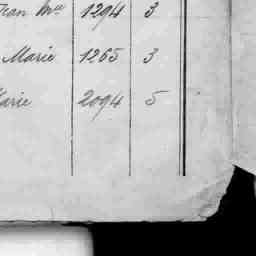 Jean Mie 1294 3
Marie 1265 3
Marie 2094 5